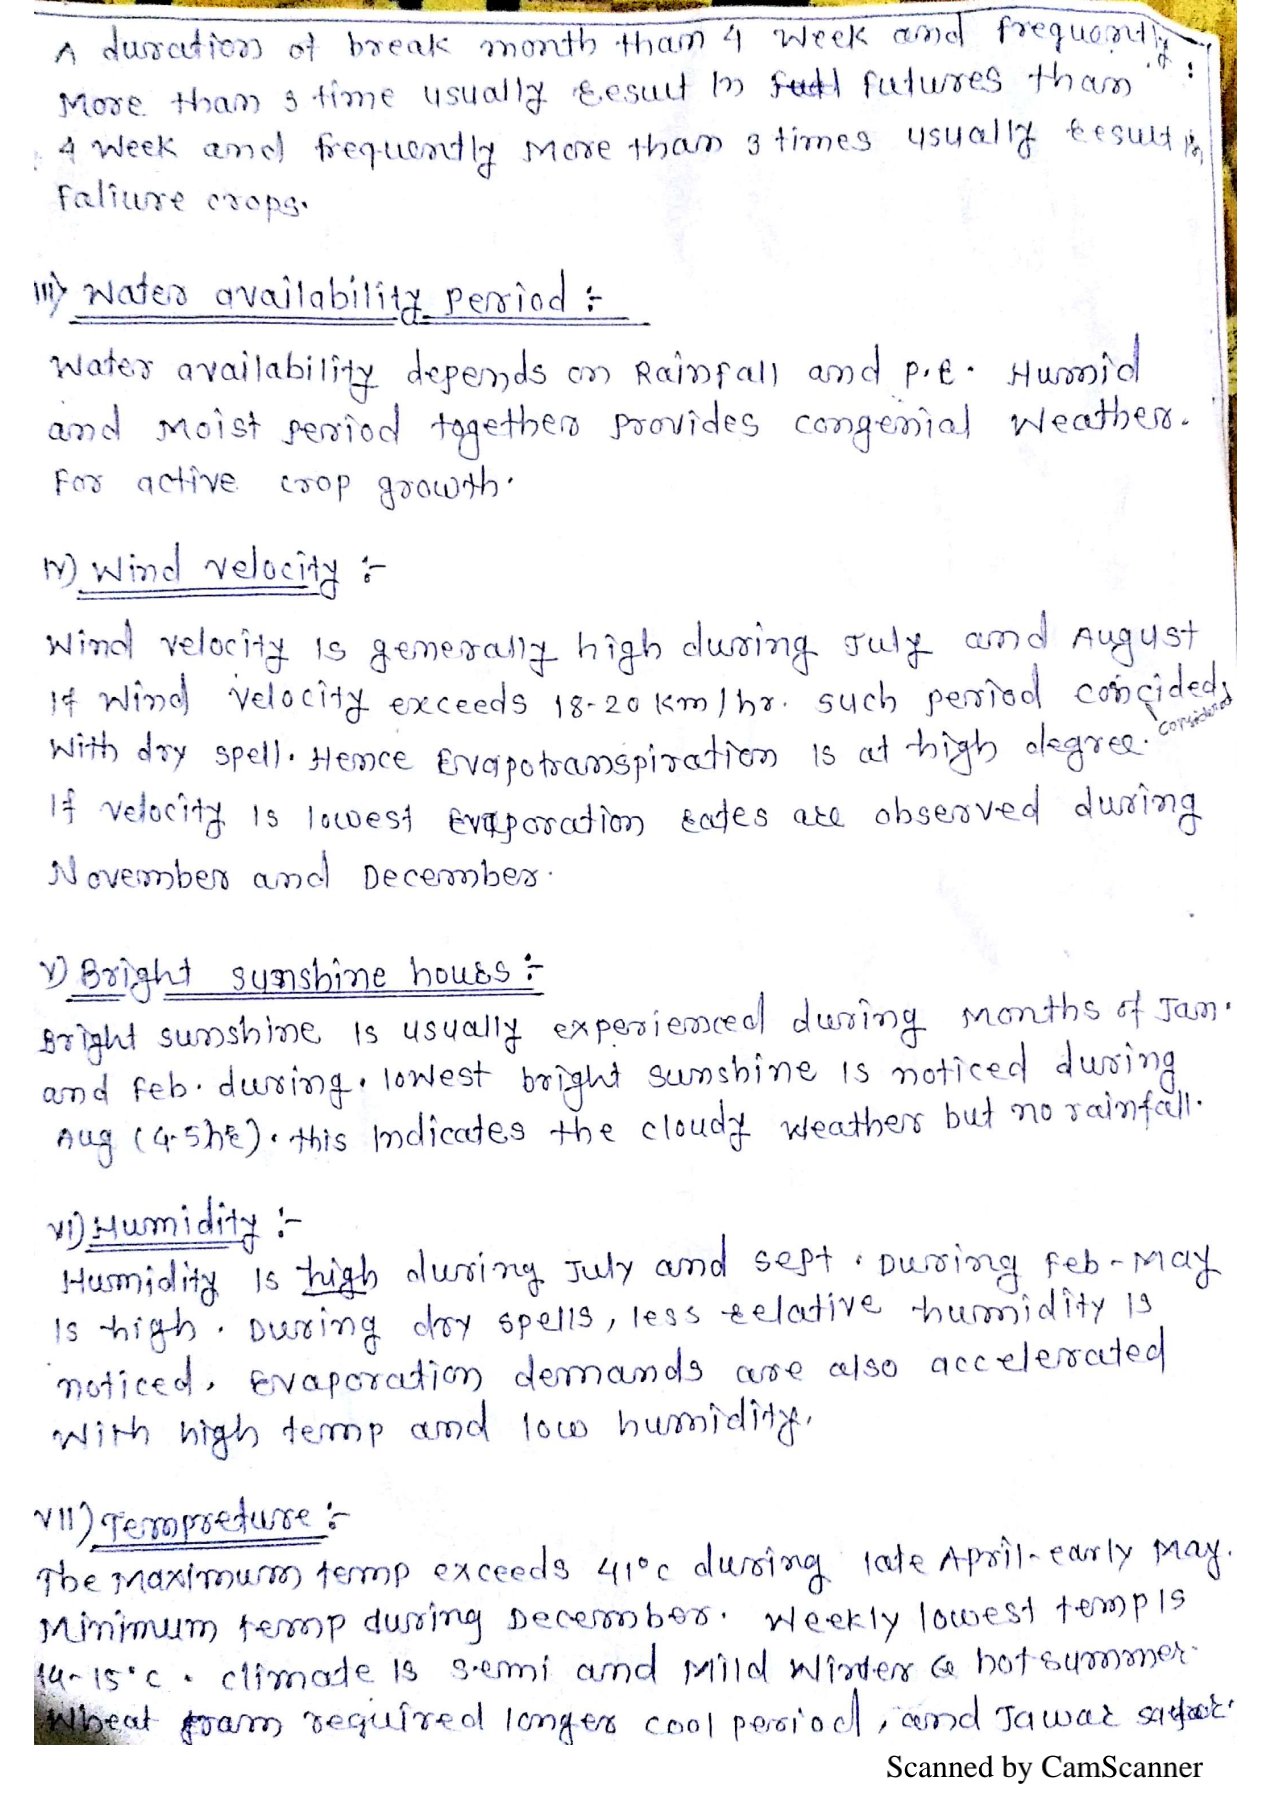 A duration of break month than 4 week and frequently
More than 3 time usually result In futures than
4 week and frequently More than 3 times usually result in
faliure crops.
III) Water availability period :-
Water availability depends on Rainfall and P.E. Humid
and Moist period together provides congenial Weather.
For active crop growth.
IV) Wind velocity :-
Wind velocity Is generally high during July and August
If Wind velocity exceeds 18-20 Km/hr. such period coincided,
considered
With dry spell. Hence Evapotranspiration Is at high degree.
If velocity Is lowest Evaporation rates are observed during
November and December.
V) Bright sunshine hours :-
Bright sunshine Is usually experienced during Months of Jan.
and Feb. during. lowest bright sunshine Is noticed during
Aug (4-5hr). this Indicates the cloudy Weather but no rainfall.
VI) Humidity :-
Humidity Is high during July and Sept. During Feb-May
Is high. During dry spells, less relative humidity Is
noticed, Evaporation demands are also accelerated
With high temp and low humidity.
VII) Tempreture :-
The Maximum temp exceeds 41°c during late April-early May.
Minimum temp during December. Weekly lowest temp Is
14-15°c. climate Is semi and Mild Winter & hot summer.
Wheat gram required longer cool period, and Jawar
Scanned by CamScanner